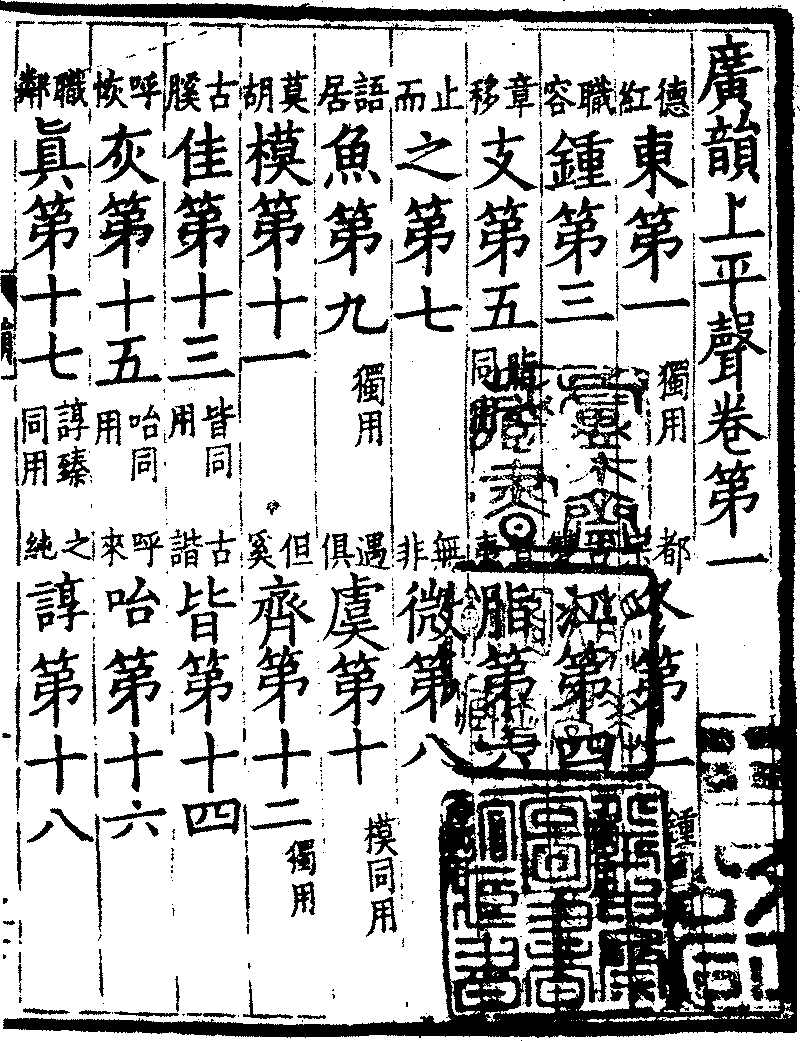 廣韻上平聲卷第一
德紅東第一獨用 都宗冬第二鍾同用
職容鍾第三 江第四
章移支第五脂之同用 旨夷脂第六
止而之第七 無非微第八
語居魚第九獨用 遇俱虞第十模同用
莫胡模第十一 但奚齊第十二獨用
古膎佳第十三皆同用 古諧皆第十四
呼恢灰第十五咍同用 呼來咍第十六
職鄰眞第十七諄臻同用 之純諄第十八